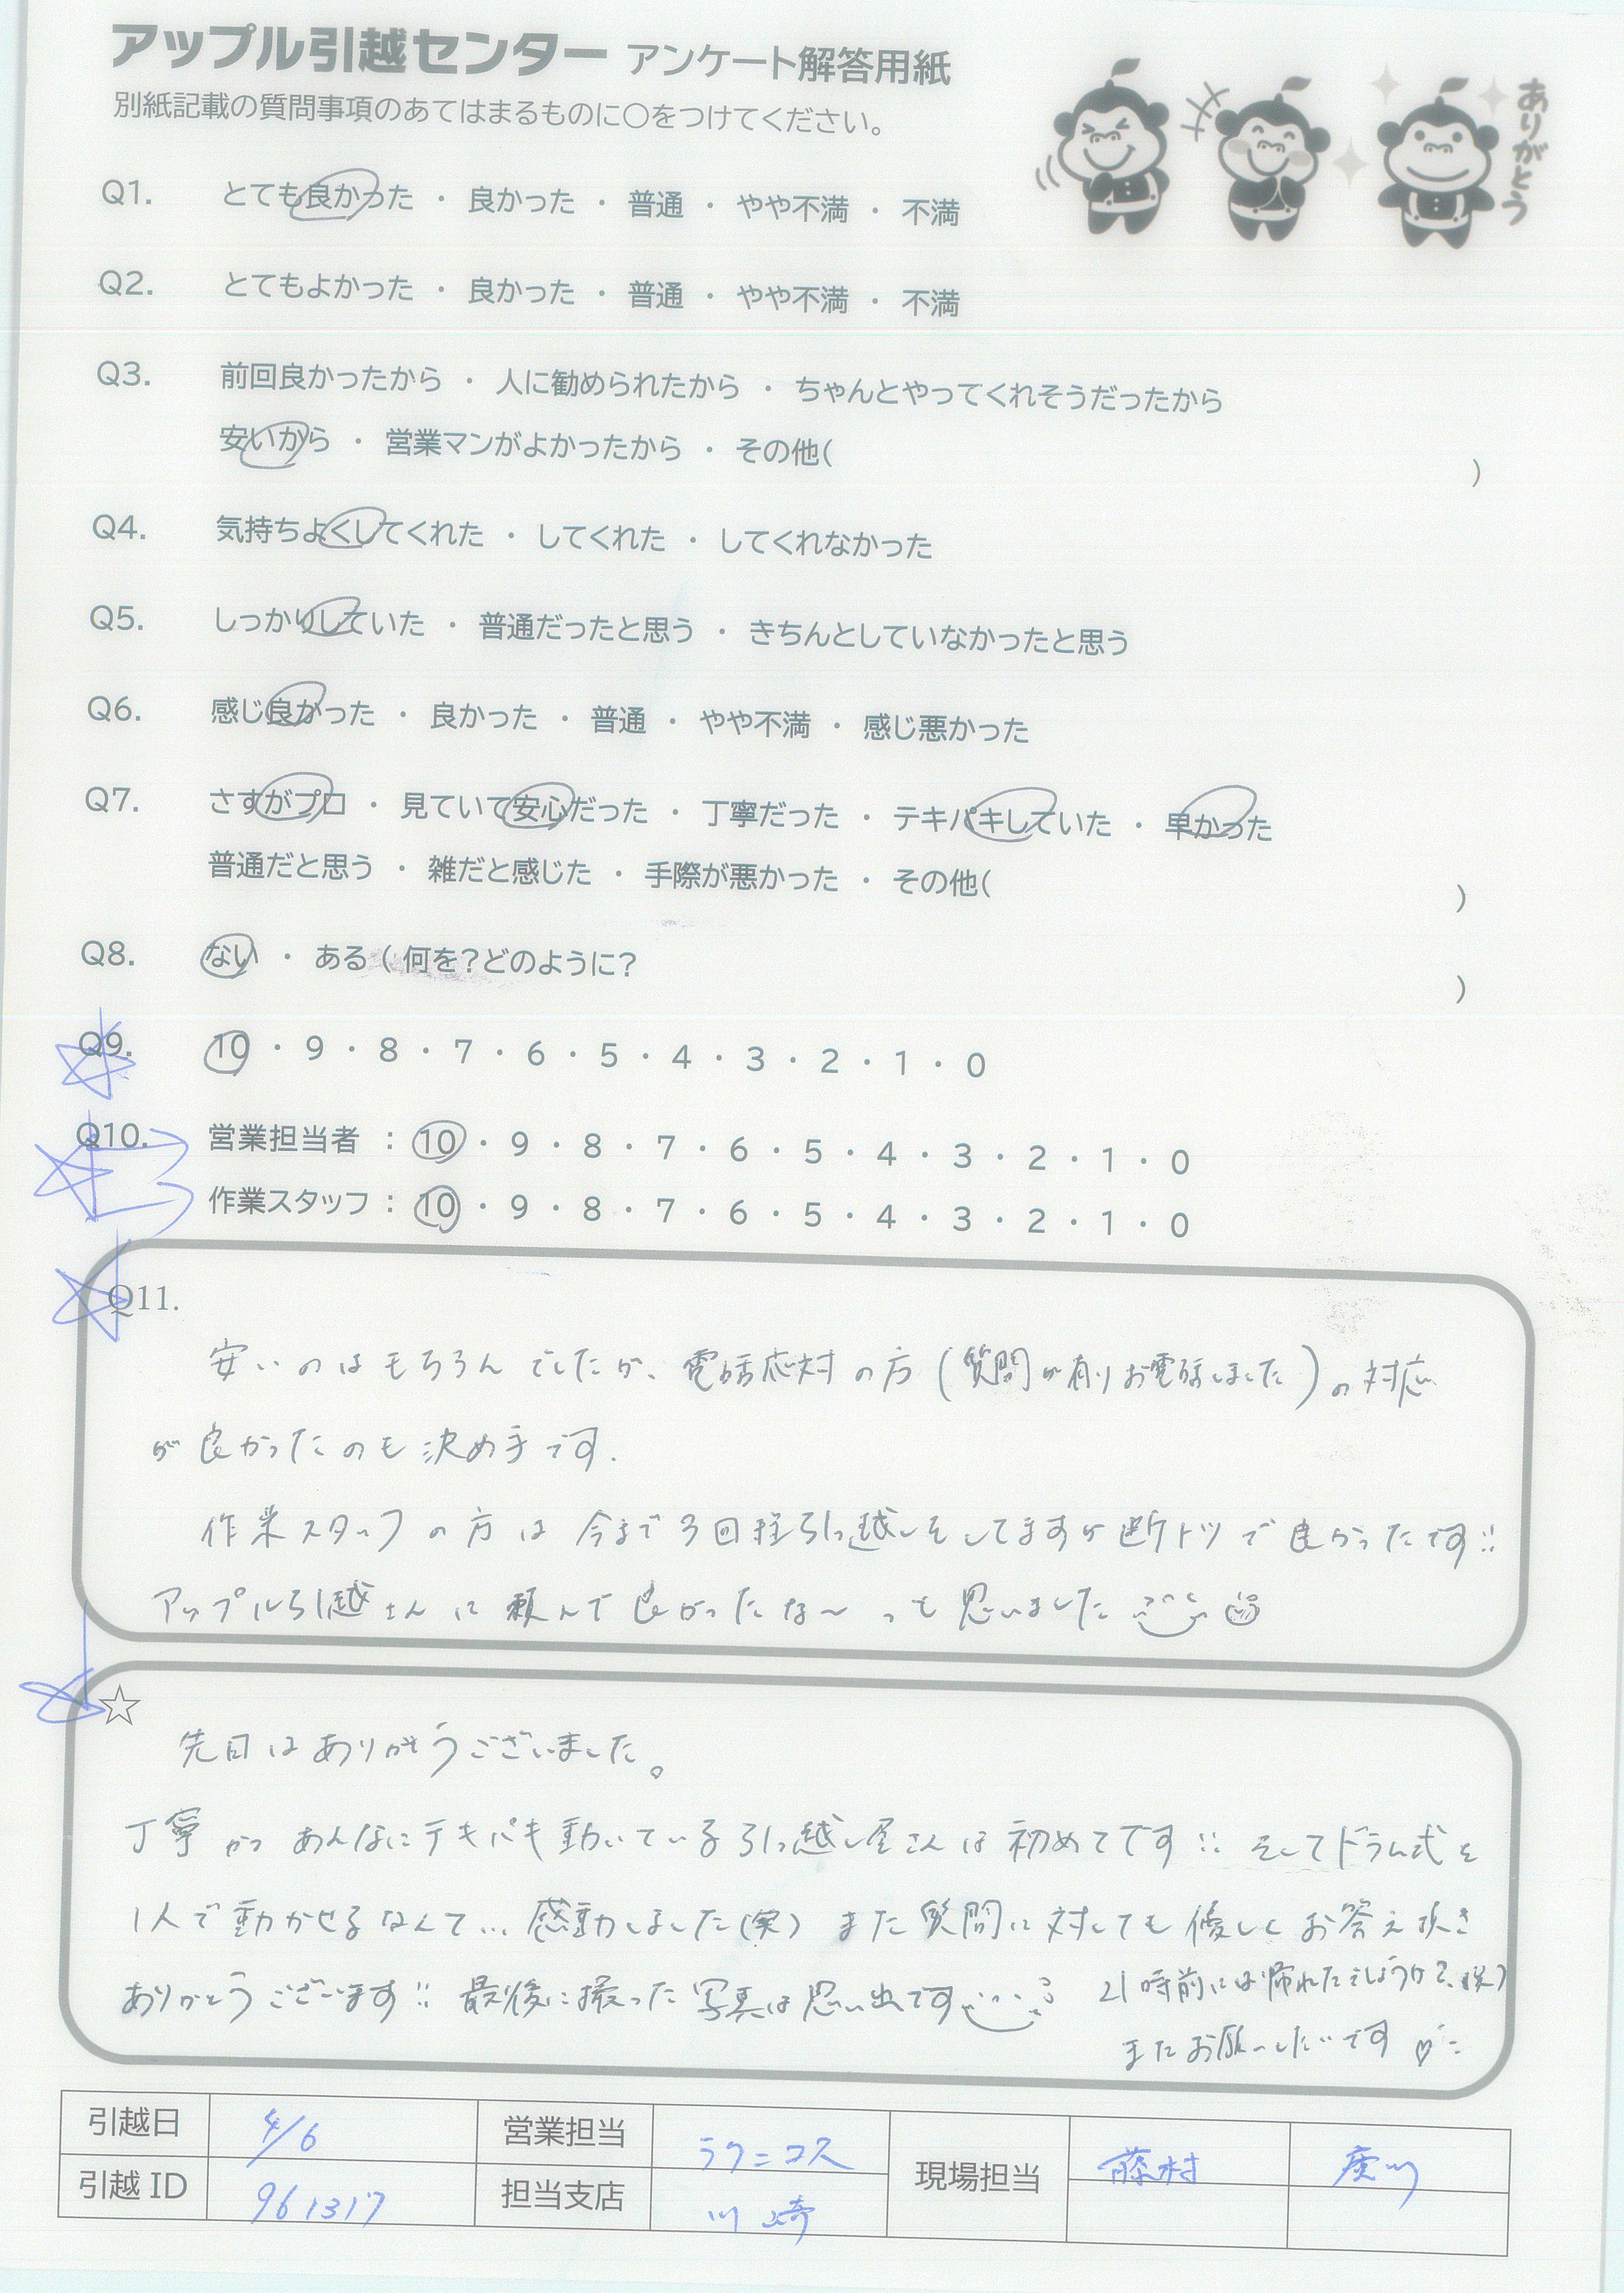 アップル引越センター アンケート解答用紙
ありがとう
別紙記載の質問事項のあてはまるものに〇をつけてください。
Q1. とても良かった ・ 良かった ・ 普通 ・ やや不満 ・ 不満
Q2. とてもよかった ・ 良かった ・ 普通 ・ やや不満 ・ 不満
Q3. 前回良かったから ・ 人に勧められたから ・ ちゃんとやってくれそうだったから
安いから ・ 営業マンがよかったから ・ その他( )
Q4. 気持ちよくしてくれた ・ してくれた ・ してくれなかった
Q5. しっかりしていた ・ 普通だったと思う ・ きちんとしていなかったと思う
Q6. 感じ良かった ・ 良かった ・ 普通 ・ やや不満 ・ 感じ悪かった
Q7. さすがプロ ・ 見ていて安心だった ・ 丁寧だった ・ テキパキしていた ・ 早かった
普通だと思う ・ 雑だと感じた ・ 手際が悪かった ・ その他( )
Q8. ない ・ ある ( 何を?どのように? )
Q9. 10 ・ 9 ・ 8 ・ 7 ・ 6 ・ 5 ・ 4 ・ 3 ・ 2 ・ 1 ・ 0
Q10. 営業担当者 : 10 ・ 9 ・ 8 ・ 7 ・ 6 ・ 5 ・ 4 ・ 3 ・ 2 ・ 1 ・ 0
作業スタッフ : 10 ・ 9 ・ 8 ・ 7 ・ 6 ・ 5 ・ 4 ・ 3 ・ 2 ・ 1 ・ 0
Q11.
安いのはもちろんでしたが、電話応対の方(質問が有りお電話しました)の対応
が良かったのも決め手です.
作業スタッフの方は今まで3回程引っ越しをしてますが断トツで良かったです!!
アップル引越さんに頼んで良かったな〜っも思いました
☆
先日はありがとうございました。
丁寧かつあんなにテキパキ動いている引っ越し屋さんは初めてです!! そしてドラム式を
1人で動かせるなんて... 感動しました(笑) また質問に対しても優しくお答え頂き
ありがとうございます!! 最後に撮った写真は思い出です 21時前には帰れたでしょうか?(笑)
またお願いしたいです ♡
引越日 4/6 営業担当 ラクニコス 現場担当 藤村 廣川
引越 ID 961317 担当支店 川崎